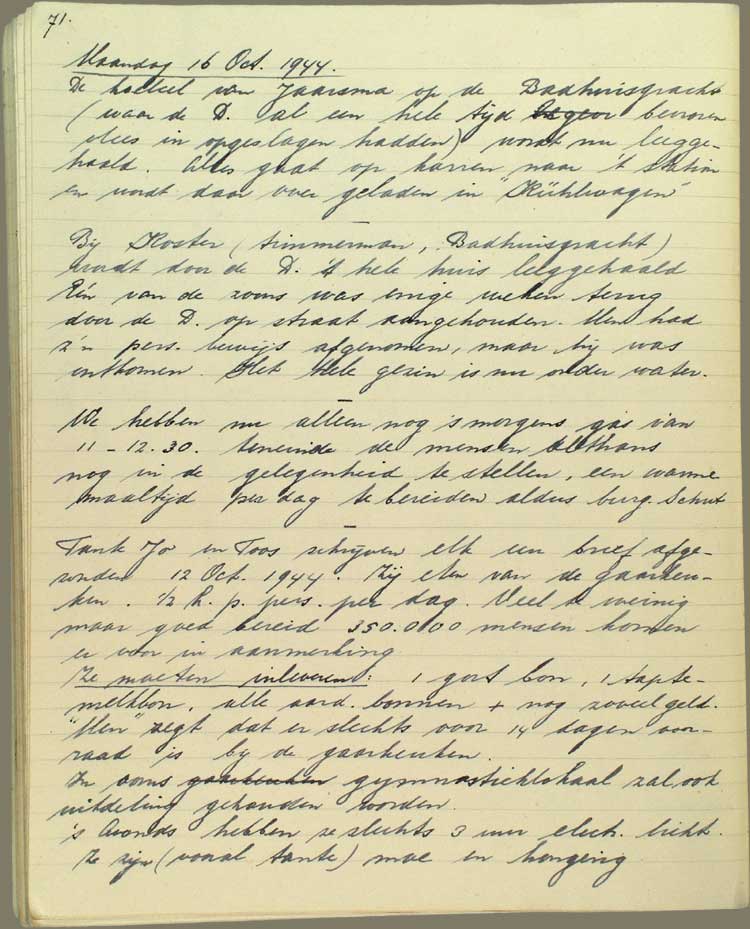 71.
Maandag 16 Oct. 1944.
De koelcel van Jaarsma op de Badhuisgracht
(waar de D. al een hele tijd bevroren
vlees in opgeslagen hadden) wordt nu leegge-
haald. Alles gaat op karren naar 't station
en wordt daar over geladen in "Kühlwagen"
Bij Koster (timmerman, Badhuisgracht)
wordt door de D. 't hele huis leeggehaald
Eén van de zoons was enige weken terug
door de D. op straat aangehouden. Men had
z'n pers. bewijs afgenomen, maar hij was
ontkomen. Het hele gezin is nu onder water.
We hebben nu alleen nog 's morgens gas van
11 - 12.30. teneinde de mensen althans
nog in de gelegenheid te stellen, een warme
maaltijd per dag te bereiden aldus burg. Schut
Tante Jo en Toos schrijven elk een brief afge-
zonden 12 Oct. 1944. Zij eten van de gaarkeu-
ken. 1/2 L. p. pers. per dag. Veel te weinig
maar goed bereid 350.000 mensen komen
er voor in aanmerking
Ze moeten inleveren: 1 gort bon, 1 tapte-
melkbon, alle aard. bonnen + nog zoveel geld.
"Men" zegt dat er slechts voor 14 dagen voor-
raad is bij de gaarkeuken.
In ooms gaarkeuken gymnastieklokaal zal ook
uitdeling gehouden worden.
's Avonds hebben ze slechts 3 uur elect. licht.
Ze zijn (vooral tante) moe en hongerig